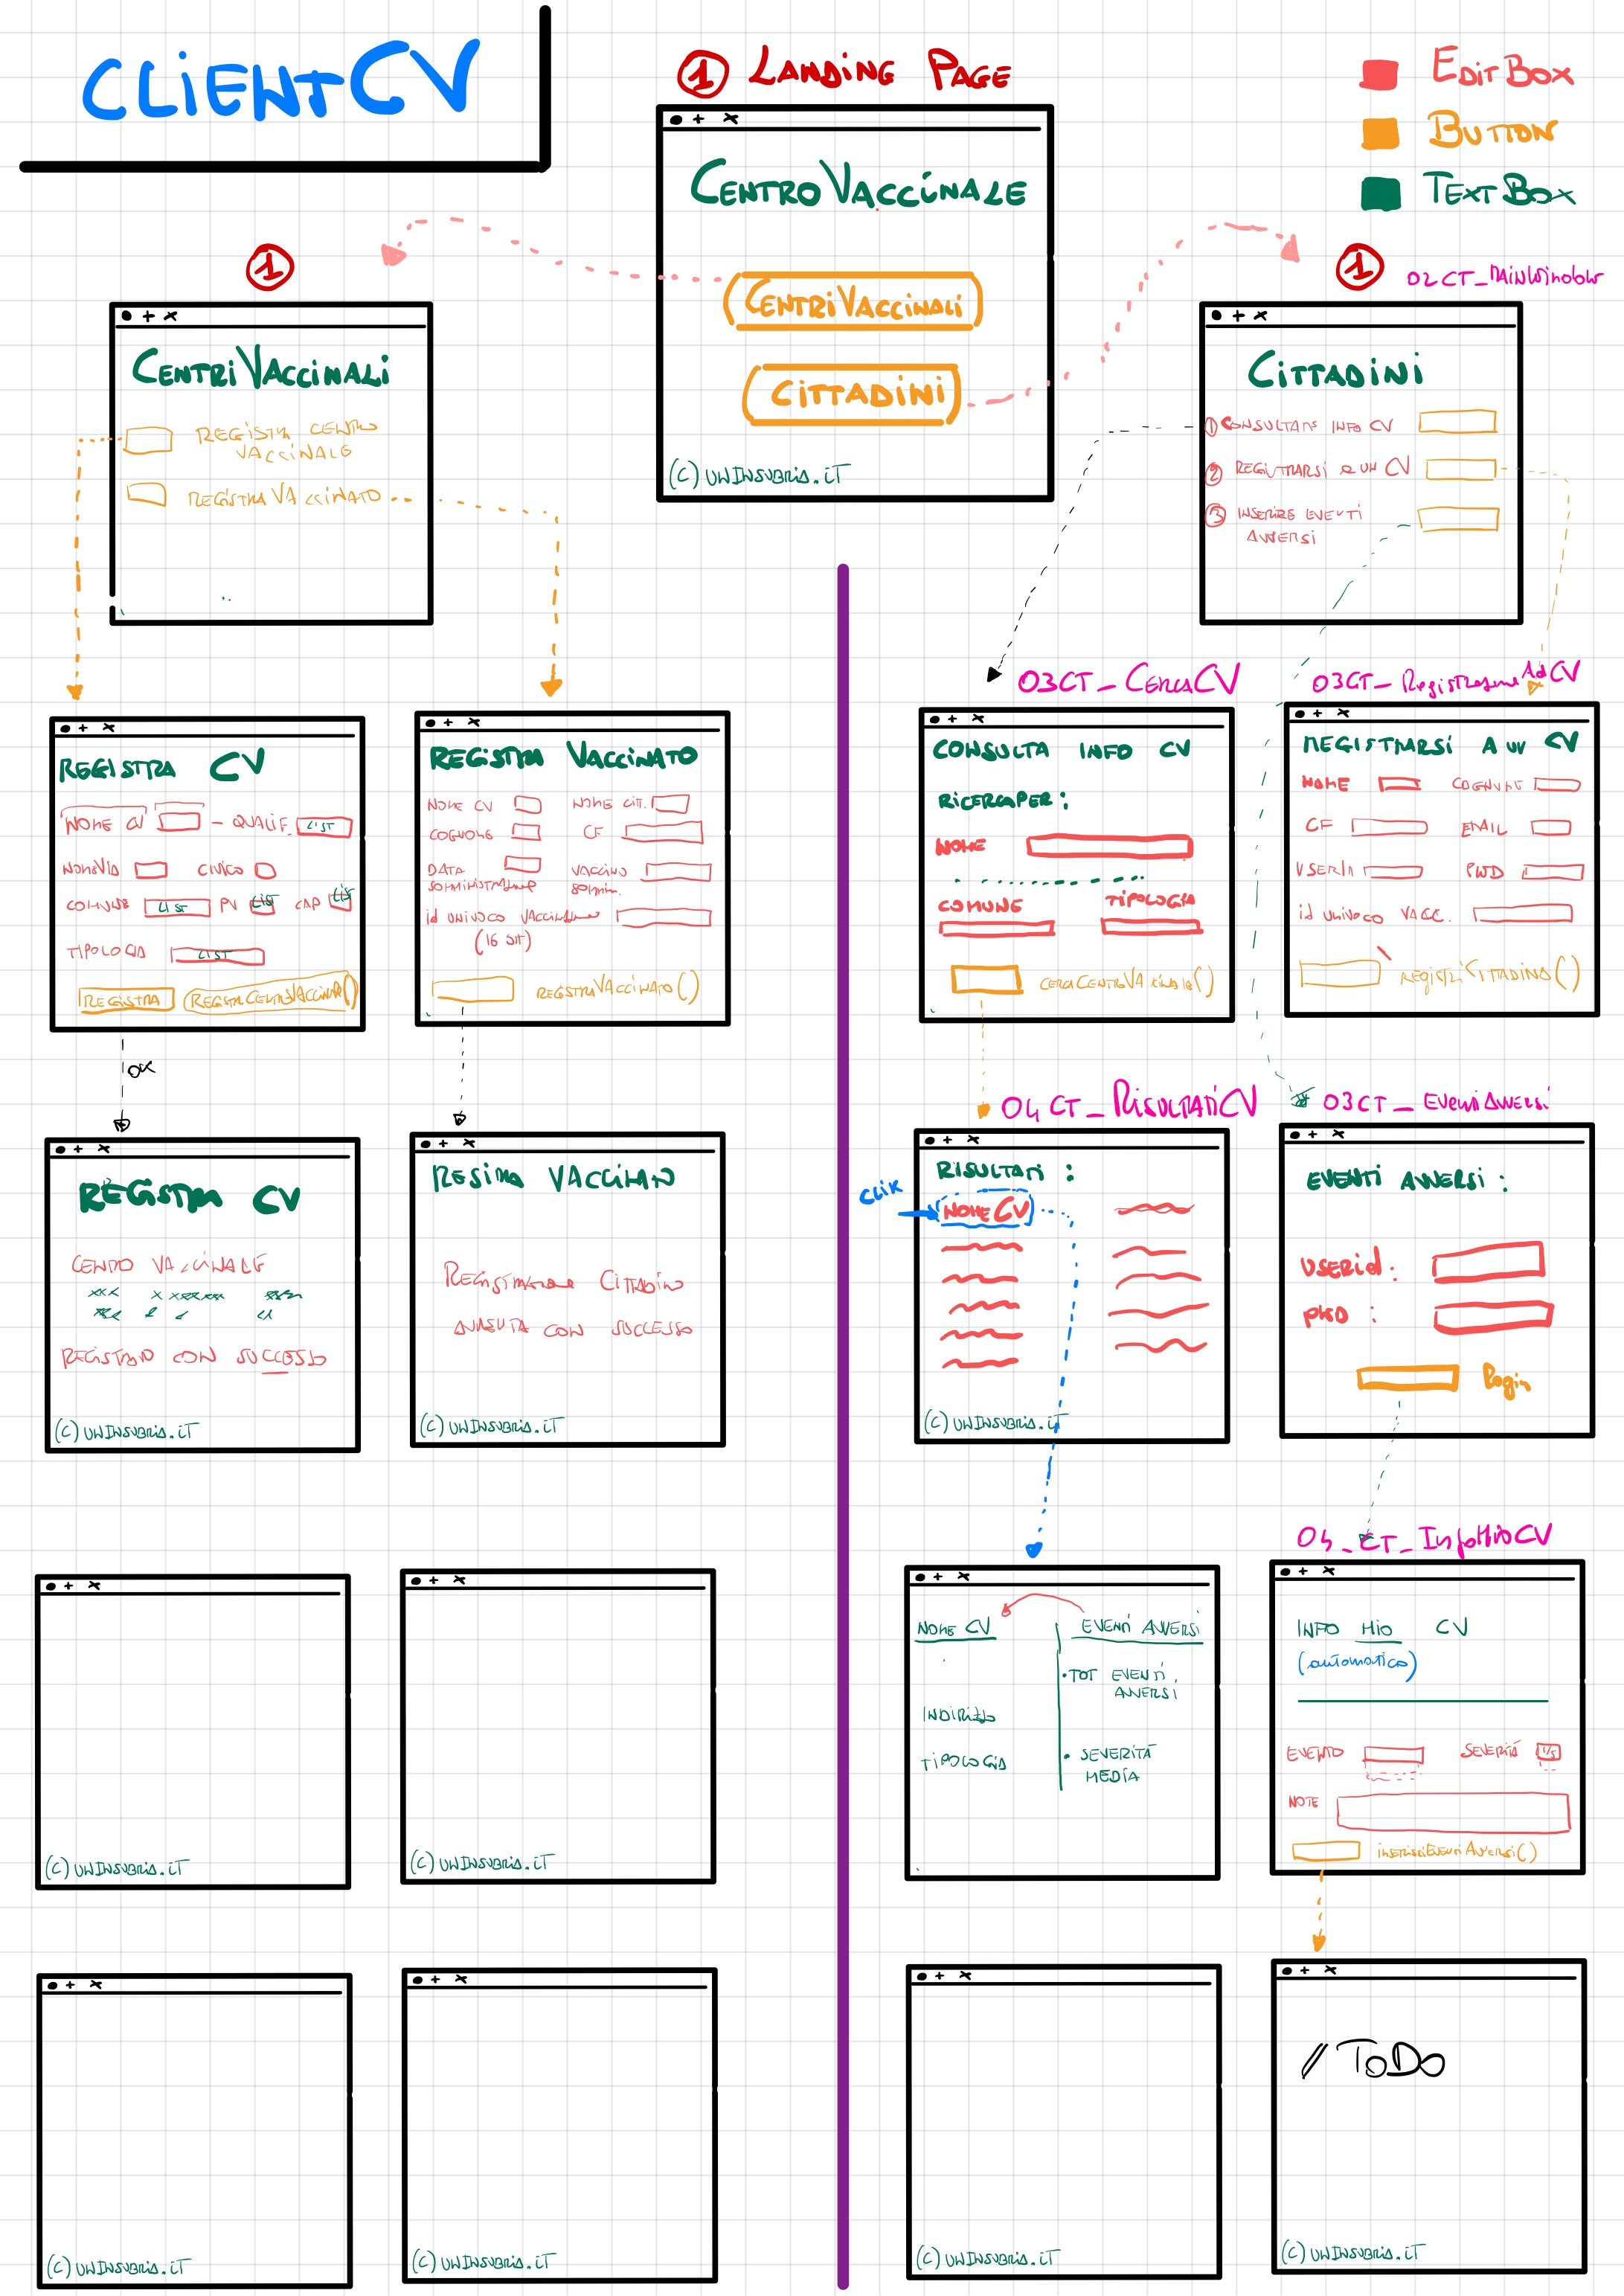 CLIENTCV
① LANDING PAGE
EDITBOX
BUTTON
TEXTBOX
CENTROVACCINALE
CENTRIVACCINALI
CITTADINI
(C) UNINSUBRIA.IT
①
CENTRIVACCINALI
REGISTRA CENTRO
VACCINALE
REGISTRA VACCINATO
①
02CT_MAINWINDOW
CITTADINI
① CONSULTARE INFO CV
② REGISTRARSI A UN CV
③ INSERIRE EVENTI
AVVERSI
REGISTRA CV
NOME CV - QUALIF. LIST
NOMEVIA CIVICO
COMUNE LIST PV LIST CAP LIST
TIPOLOGIA LIST
REGISTRA
OK
REGISTRA VACCINATO
NOME CV NOME CIT.
COGNOME CF
DATA VACCINO
SOMMIN.
id UNIVOCO
(16 BIT)
REGISTRAVACCINATO()
03CT_CERCACV
CONSULTA INFO CV
RICERCAPER:
NOME
COMUNE TIPOLOGIA
03CT_RegistrazioneAdCV
REGISTRARSI A UN CV
NOME COGNOME
CF EMAIL
USERID PWD
id UNIVOCO VACC.
REGISTRACITTADINO()
REGISTRA CV
CENTRO VACCINALE
xxx x xxxxxx
REGISTRATO CON SUCCESSO
(C) UNINSUBRIA.IT
VACCINATO
REGISTRAZIONE CITTADINO
AVVENUTA CON SUCCESSO
(C) UNINSUBRIA.IT
04CT_RISULTATICV
RISULTATI:
CLIK
NOMECV
(C) UNINSUBRIA.IT
03CT_EVENTIAVVERSI
EVENTI AVVERSI:
USERId:
PWD:
Login
(C) UNINSUBRIA.IT
(C) UNINSUBRIA.IT
NOME CV
INDIRIZZO
TIPOLOGIA
EVENTI AVVERSI
• TOT EVENTI
AVVERSI
• SEVERITÀ
MEDIA
04_CT_InfoMioCV
INFO MIO CV
(automatico)
EVENTO SEVERITÀ 1/5
NOTE
INSERISCIEVENTIAVVERSI()
(C) UNINSUBRIA.IT
(C) UNINSUBRIA.IT
(C) UNINSUBRIA.IT
// TODO
(C) UNINSUBRIA.IT